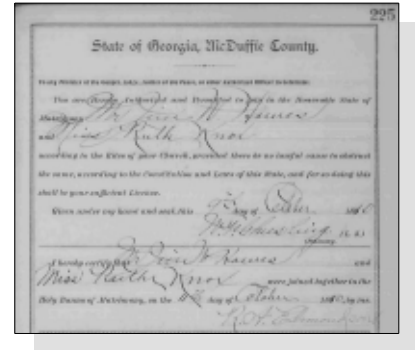 225
State of Georgia, McDuffie County.
To any Minister of the Gospel, Judge, Justice of the Peace, or other Authorized Officer to Celebrate:
You are Hereby Authorized and Permitted to join in the Honorable State of
Matrimony
and Miss Ruth Knox
according to the Rites of your Church, provided there be no lawful cause to obstruct
the same, according to the Constitution and Laws of this State, and for so doing this
shall be your sufficient License.
Given under my hand and seal, this day of October
Ordinary.
I hereby certify that and
Miss Ruth Knox were joined together in the
Holy Banns of Matrimony, on the day of October by me.